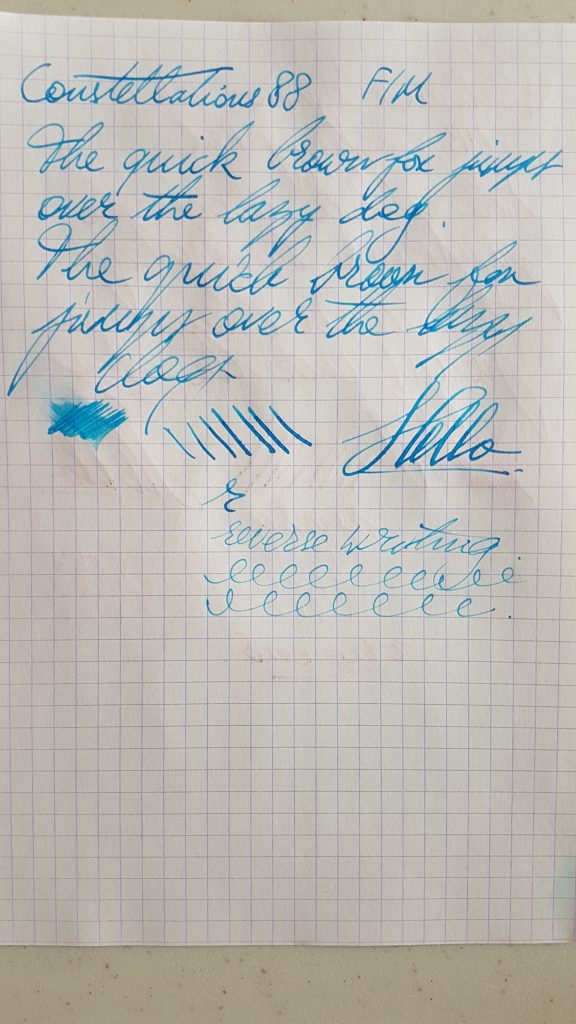 Constellations 88 F/M
The quick brown fox jumps
over the lazy dog.
The quick brown fox
jumps over the lazy
dog
Hello
r
reverse writing.